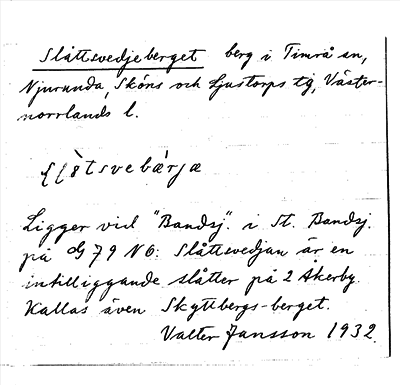 Slåttsvedjeberget berg i Timrå sn,
Njurunda, Sköns och Ljustorps tg, Väster-
norrlands l.
Ligger vid "Bandsj". i St. Bandsj.
på 79 NO: Slåttsvedjan är en
intilliggande slåtter på 2 Åkerby.
Kallas även Skyttbergs-berget.
Valter Jansson 1932.